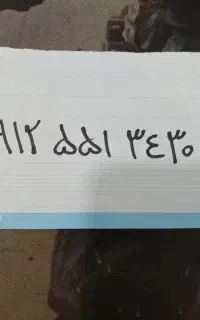 ۹۱۲ ۵۵۱ ۳٤۳۰